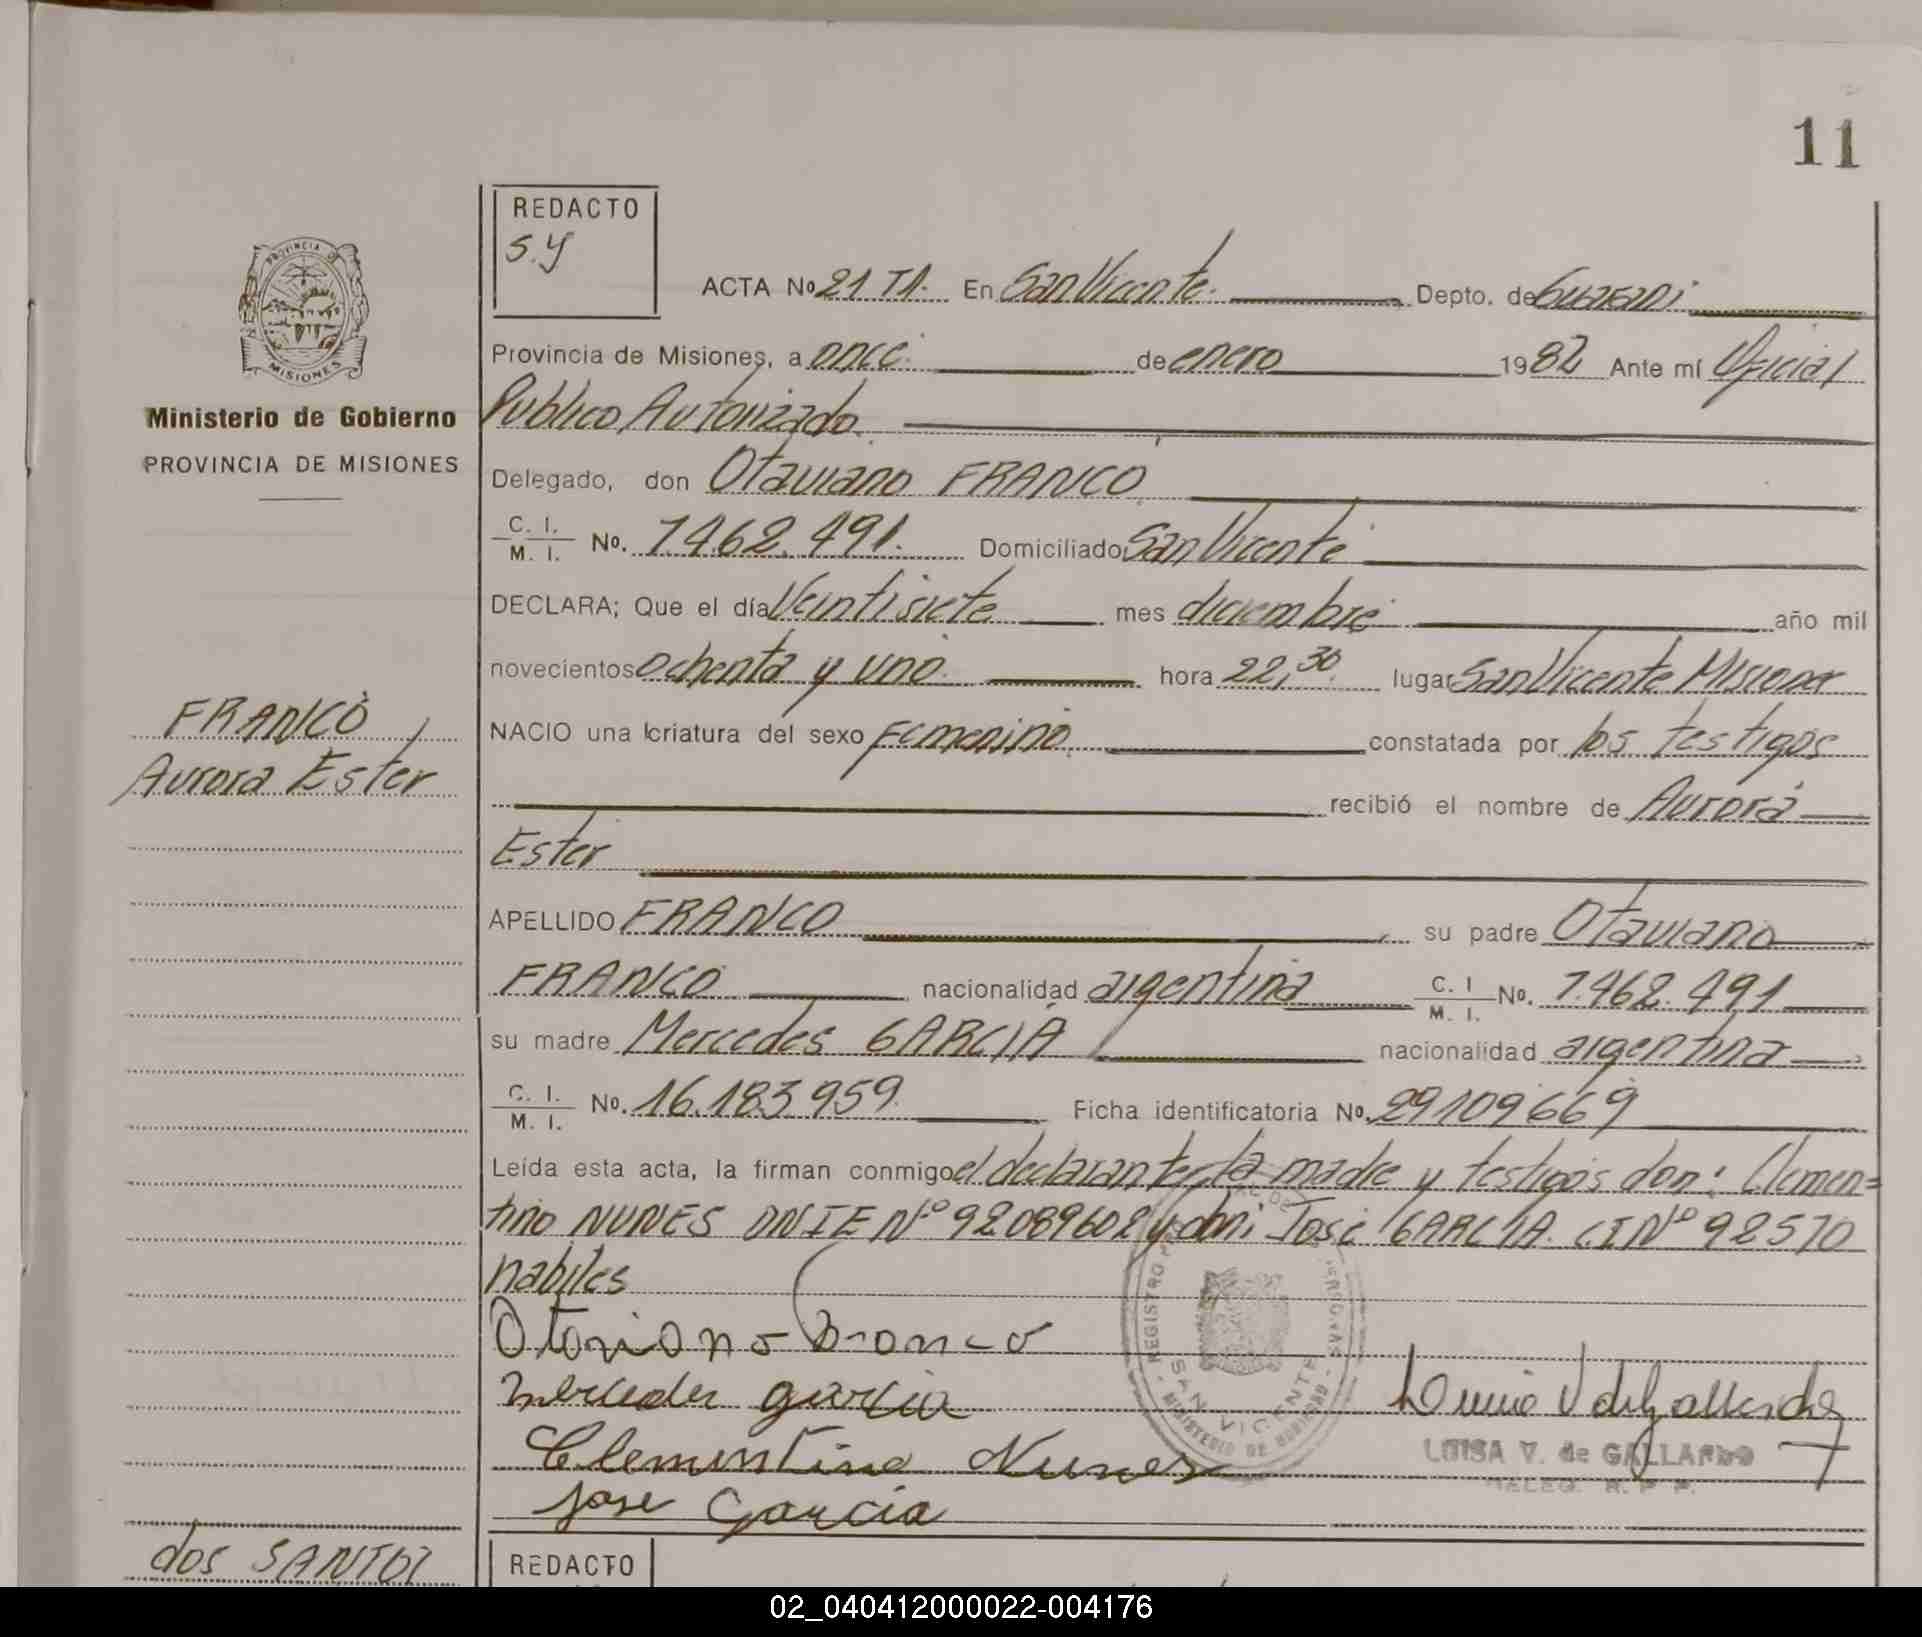 11
REDACTO
S.Y
ACTA No 21 T1. En San Vicente. Depto. de Guaraní
Provincia de Misiones, a once. de enero 1982 Ante mí Oficial
Publico Autorizado.
Delegado, don Otaviano FRANCO
C. I. / M. I. No. 7.462.491. Domiciliado San Vicente
DECLARA; Que el día Veintisiete mes diciembre año mil
novecientos ochenta y uno. hora 22,30. lugar San Vicente Misiones
NACIO una criatura del sexo Femenino. constatada por los testigos
recibió el nombre de Aurora
Ester
APELLIDO FRANCO su padre Otaviano
FRANCO nacionalidad argentina C. I / M. I. No. 7.462.491
su madre Mercedes GARCIA nacionalidad argentina
C. I. / M. I. No. 16.183.959. Ficha identificatoria No. 29109669
Leída esta acta, la firman conmigo el declarante, la madre y testigos don: Clemen=
tino NUNES DNIE Nº 92089602 y don José GARCIA. CI Nº 92570
habiles
Otaviano Franco
Mercedes garcia
Clementino Nunes
Jose Garcia
REGISTRO
SAN VICENTE
MINISTERIO DE GOBIERNO
LUISA V. de GALLARDO
DELEG. R. P. P.
PROVINCIA DE
MISIONES
Ministerio de Gobierno
PROVINCIA DE MISIONES
FRANCO
Aurora Ester
dos SANTOS
REDACTO
02_040412000022-004176